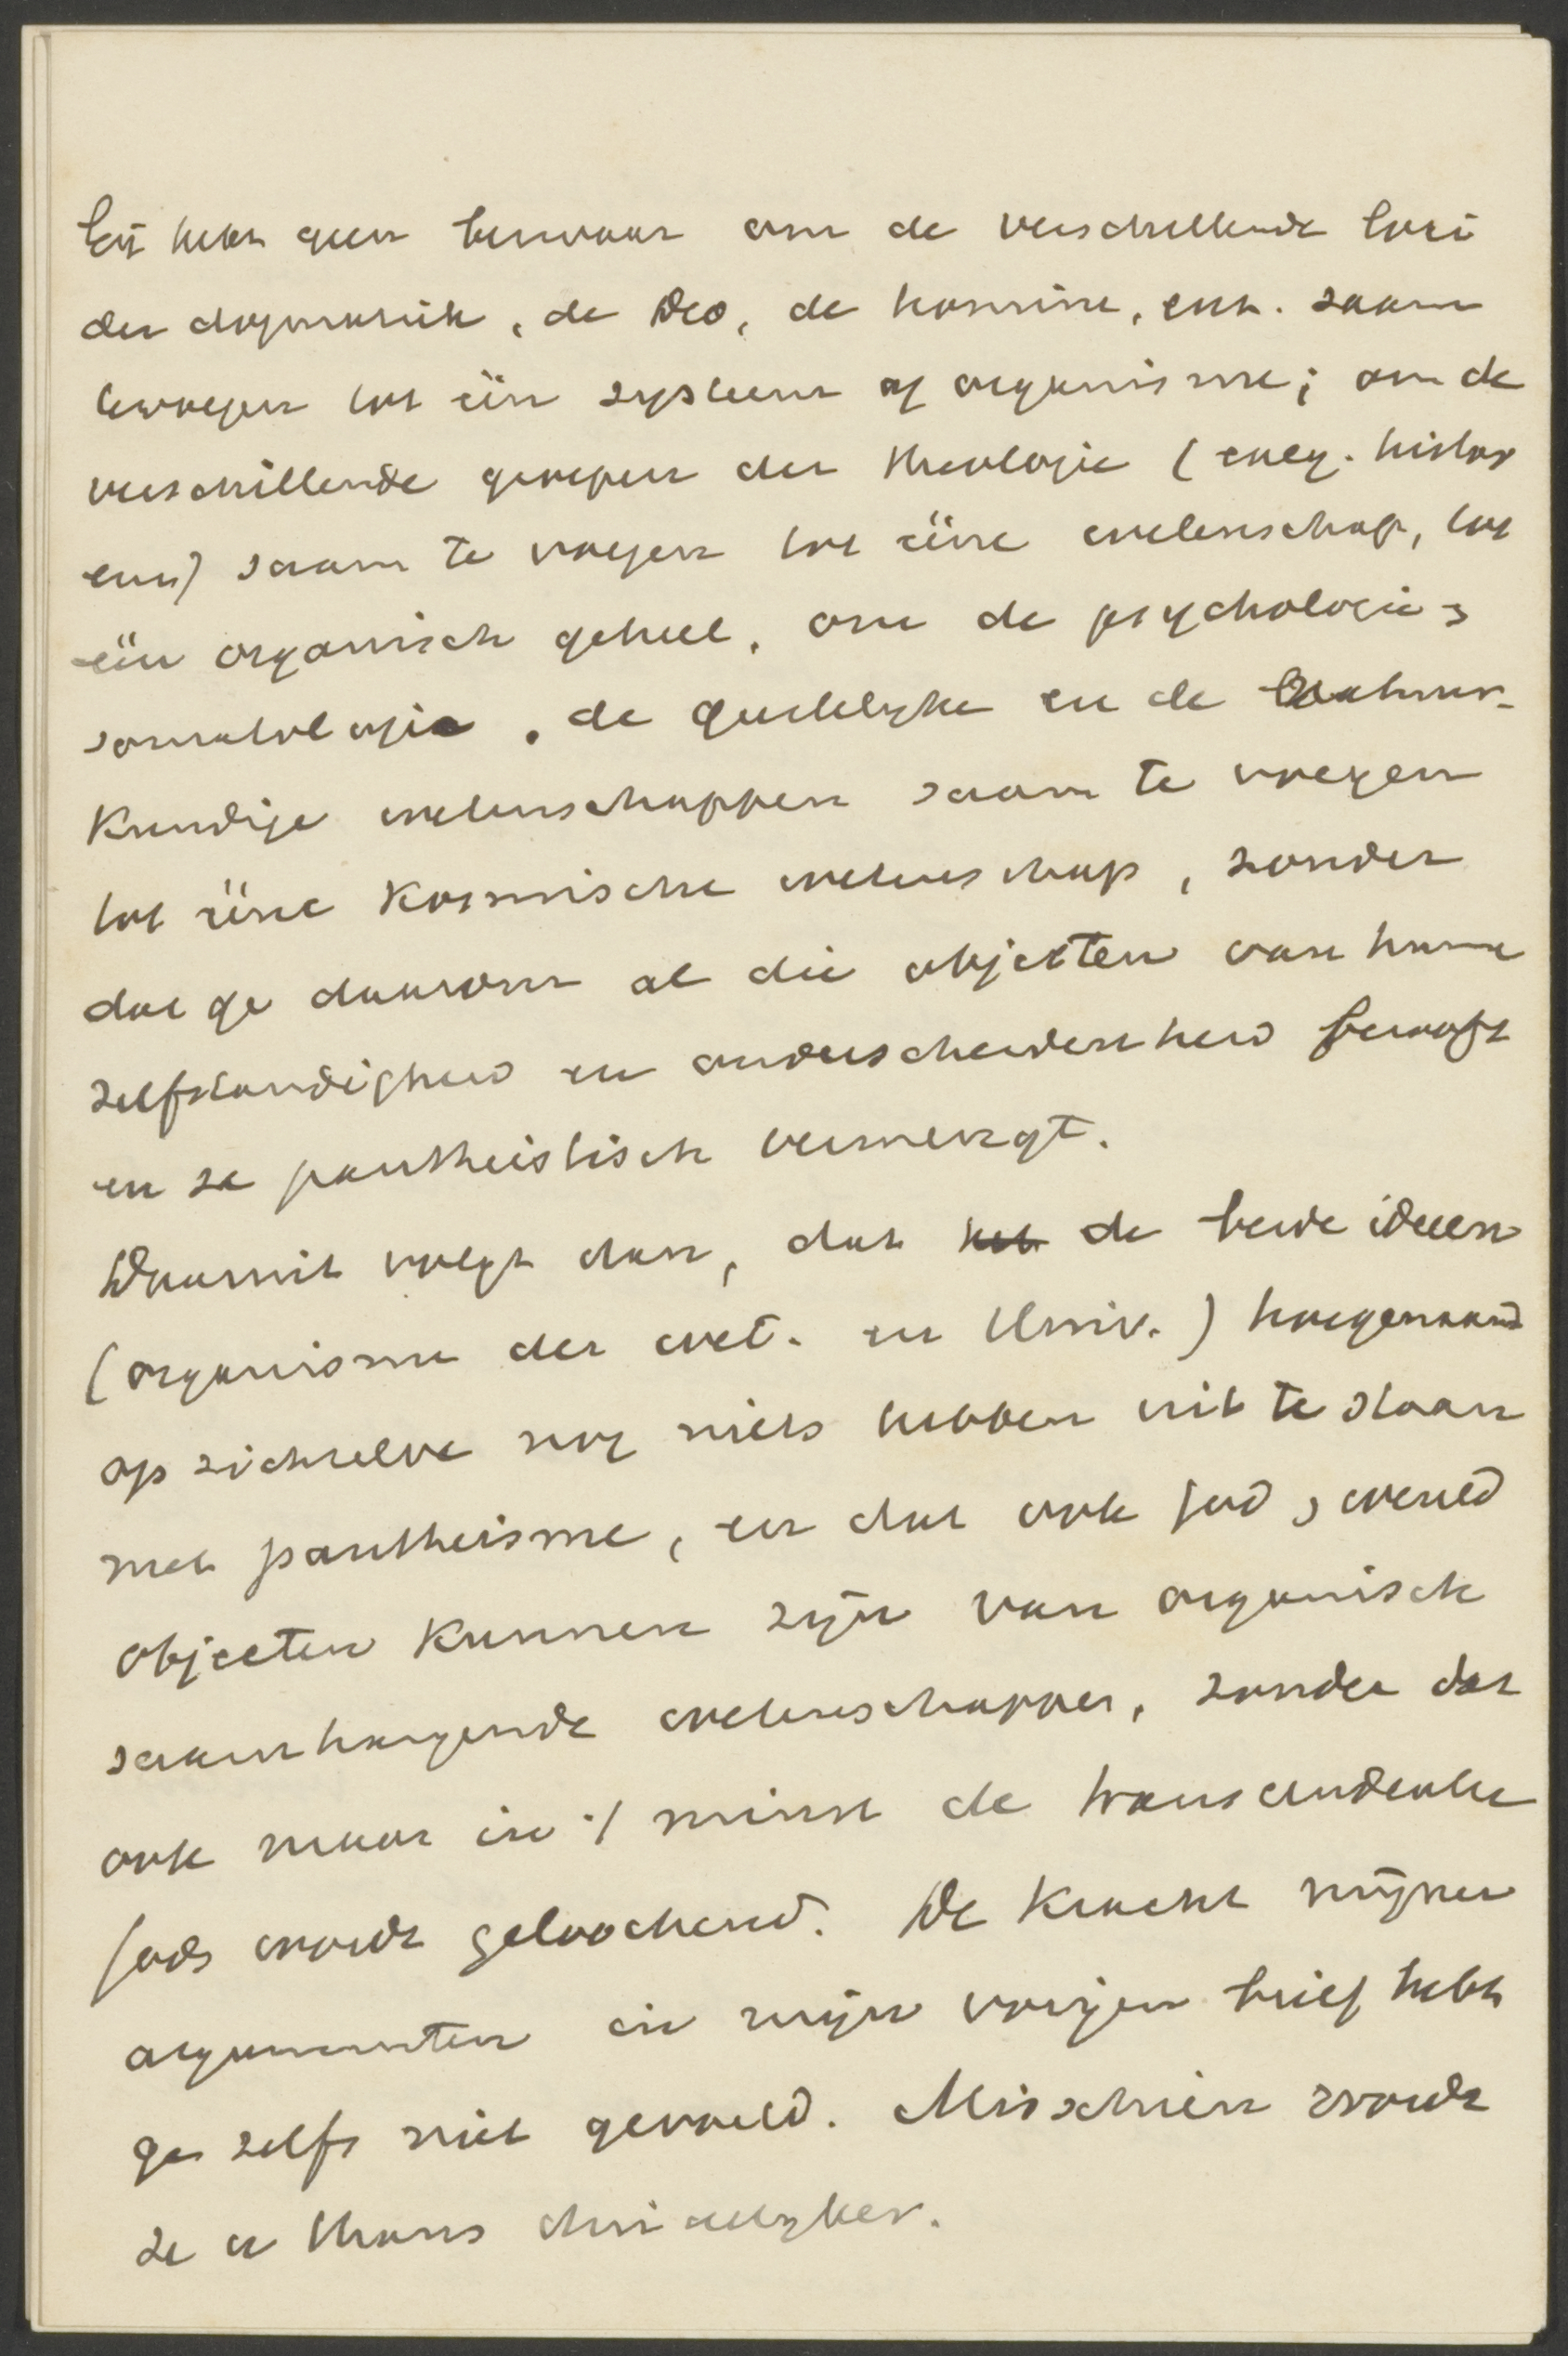 Gij hebt geen bezwaar om de verschillende loci
der dogmatiek, de Deo, de homine, enz. saam
te voegen tot één systeem of organisme; om de
verschillende groepen der theologie (exeg. histor
enz) saam te voegen tot ééne wetenschap, tot
één organisch geheel, om de psychologie &
somatologie, de geestelyke en de natuur-
kundige wetenschappen saam te voegen
tot ééne kosmische wetenschap, zonder
dat ge daarom al die objekten van hunne
zelfstandigheid en onderscheidenheid berooft
en ze pantheistisch vermengt.
Daaruit volgt dan, dat het de beide ideeen
(organisme der wet. en Univ.) hoegenaamd
op zichzelve nog niets hebben uit te staan
met pantheisme, en dat ook God & wereld
objecten kunnen zijn van organisch
saamhangende wetenschappen, zonder dat
ook maar in 't minst de transcendentie
Gods wordt geloochend. De kracht mijner
argumenten in mijn vorigen brief hebt
ge zelfs niet gevoeld. Misschien wordt
ze u thans duidelyker.